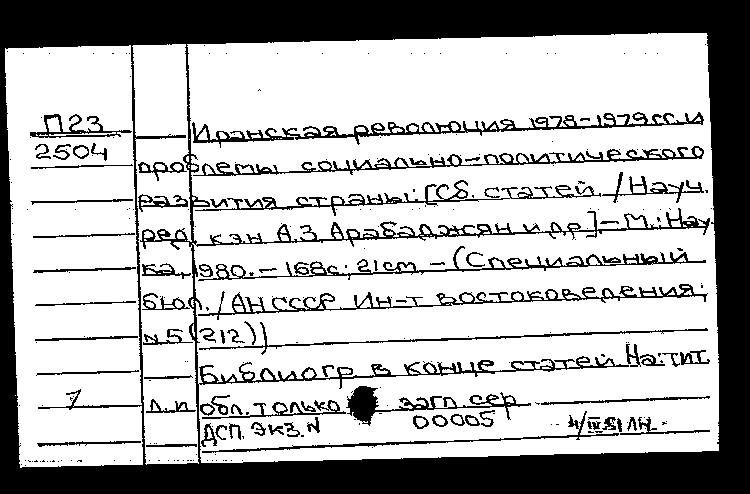 П23
2504
Иранская революция 1978-1979 гг. и
проблемы социально-политического
развития страны: [Сб. статей / Науч.
ред. кэн А.З. Арабаджян и др.] - М.: Нау
ка, 1980. - 168с; 21cm. - (Специальный
бюл. / АН СССР Ин-т востоковедения;
N5(212))
Библиогр в конце статей. На: тит.
л. и обл. только загл. сер
ДСП. ЭКЗ. N 00005